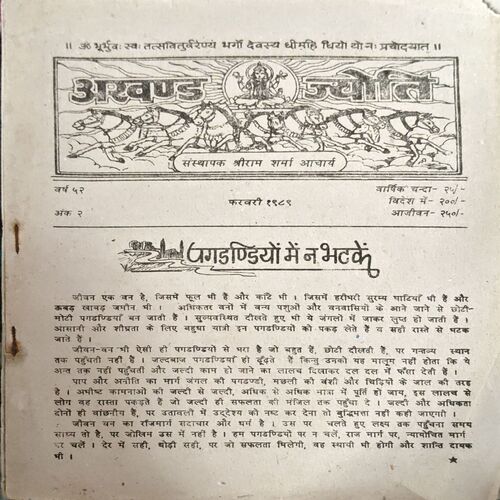 ॥ ॐ भूर्भुवः स्वः तत्सवितुर्वरेण्यं भर्गो देवस्य धीमहि धियो यो नः प्रचोदयात् ॥
अखण्ड ज्योति
संस्थापक श्रीराम शर्मा आचार्य
वर्ष ५२
अंक २
फरवरी १९८९
वार्षिक चन्दा- २५/-
विदेश में- २००/-
आजीवन- २५०/-
पगडण्डियों में न भटकें
जीवन एक वन है, जिसमें फूल भी हैं और काँटे भी । जिसमें हरीभरी सुरम्य घाटियाँ भी हैं और
ऊबड़ खाबड़ जमीन भी । अधिकतर वनों में वन्य पशुओं और वनवासियों के आने जाने से छोटी-
मोटी पगडण्डियाँ बन जाती हैं । सुव्यवस्थित दीखते हुए भी ये जंगलों में जाकर लुप्त हो जाती हैं ।
आसानी और शीघ्रता के लिए बहुधा यात्री इन पगडण्डियों को पकड़ लेते हैं व सही रास्ते से भटक
जाते हैं ।
जीवन-वन भी ऐसी ही पगडण्डियों से भरा है जो बहुत हैं, छोटी दीखती हैं, पर गन्तव्य स्थान
तक पहुँचती नहीं हैं । जल्दबाज पगडण्डियाँ ही ढूँढ़ते हैं किन्तु उनको यह मालूम नहीं होता कि ये
अन्त तक नहीं पहुँचती और जल्दी काम हो जाने का लालच दिखाकर दल दल में फँसा देती हैं ।
पाप और अनीति का मार्ग जंगल की पगडण्डी, मछली की बंशी और चिड़ियों के जाल की तरह
है । अभीष्ट कामनाओं की जल्दी से जल्दी, अधिक से अधिक मात्रा में पूर्ति हो जाय, इस लालच से
लोग वह रास्ता पकड़ते हैं जो जल्दी ही सफलता की मंजिल तक पहुँचा दे । जल्दी और अधिकता
दोनों ही वांछनीय हैं, पर उतावली में उद्देश्य को नष्ट कर देना तो बुद्धिमत्ता नहीं कही जाएगी ।
जीवन वन का राजमार्ग सदाचार और धर्म है । उस पर चलते हुए लक्ष्य तक पहुँचना समय
साध्य तो है, पर जोखिम उस में नहीं है । हम पगडण्डियों पर न चलें, राज मार्ग पर, न्यायोचित मार्ग
पर चलें । देर में सही, थोड़ी सही, पर जो सफलता मिलेगी, वह स्थायी भी होगी और शान्ति दायक
भी ।